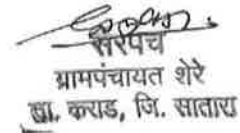 सरपंच
ग्रामपंचायत शेरे
ता. कराड, जि. सातारा